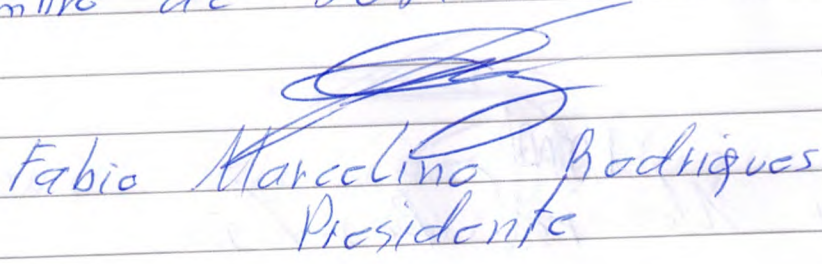 de
Fabio Marcelino Rodrigues
Presidente